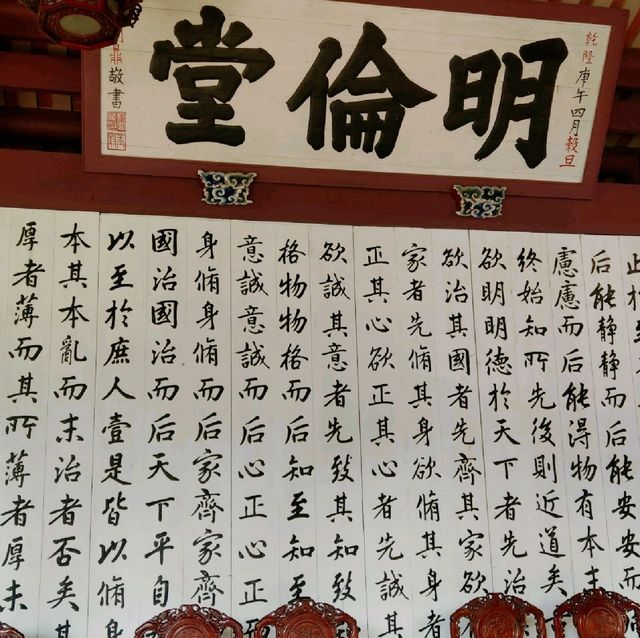 乾隆庚午四月穀旦
明倫堂
鼎敬書
止於
后能静静而后能安安而
慮慮而后能得物有本末
終始知所先後則近道矣
欲明明德於天下者先治
欲治其國者先齊其家欲
家者先脩其身欲脩其身者
正其心欲正其心者先誠其
欲誠其意者先致其知致
格物物格而后知至知至
意誠意誠而后心正心正
身脩身脩而后家齊家齊
國治國治而后天下平自
以至於庶人壹是皆以脩身
本其本亂而末治者否矣其
厚者薄而其所薄者厚未